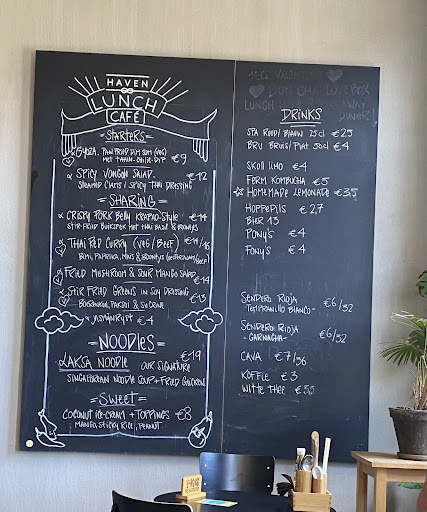 HAVEN
LUNCH
CAFÉ
=STARTERS=
GYOZA, PAN FRIED DIM SUM (VEG) €9
WITH TAHIN-CHILI-DIP
SPICY VONGOLE SALAD. €12
STEAMED CLAMS / SPICY THAI DRESSING
=SHARING=
CRISPY PORK BELLY KRAPAO-STYLE €14
STIR-FRIED BUIKSPEK MET THAI BASIL &
THAI RED CURRY (VEG/BEEF) €14/16
FRIED MUSHROOM & SOUR MANGO SALAD €14
STIR FRIED GREENS IN SOY DRESSING €13
JASMIJNRIJST €4
=NOODLES=
LAKSA NOODLE OUR SIGNATURE €19
SINGAPOREAN NOODLE SOUP + FRIED CHICKEN
=SWEET=
COCONUT ICE-CREAM + TOPPINGS €8
MANGO, STICKY RICE, PEANUT
LUNCH
DRINKS
SPA ROOD/BLAUW 25cl €2,5
BRU BRUIS/PLAT 50cl €4
SKOLL LIMO €4
FERM KOMBUCHA €5
HOMEMADE LEMONADE €3,5
HOPPEPILS €2,7
BIER 13
PONY'S €4
FONY'S €4
SENDERO RIOJA €6/32
-TEMPRANILLO BIANCO-
SENDERO RIOJA €6/32
-GARNACHA-
CAVA €7/36
KOFFIE €3
WITTE THEE €5,5